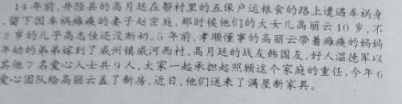 14年前,井陉县的高月廷在帮村里的五保户运粮食的路上遭遇车祸身
,留下因车祸瘫痪的妻子赵密庭,那时候他们的大女儿高丽云10岁,不
2岁的儿子高志佳还没断奶。5年前,孝顺懂事的高丽云带着瘫痪的妈妈
年幼的弟弟嫁到了威州镇威河西村。高月廷的战友韩国友、好人温德军以
其他7名爱心人士共9人,大家一起承担起照顾这个家庭的重任。今年6
爱心团队给高丽云盖了新房,近日,他们送来了满屋新家具。